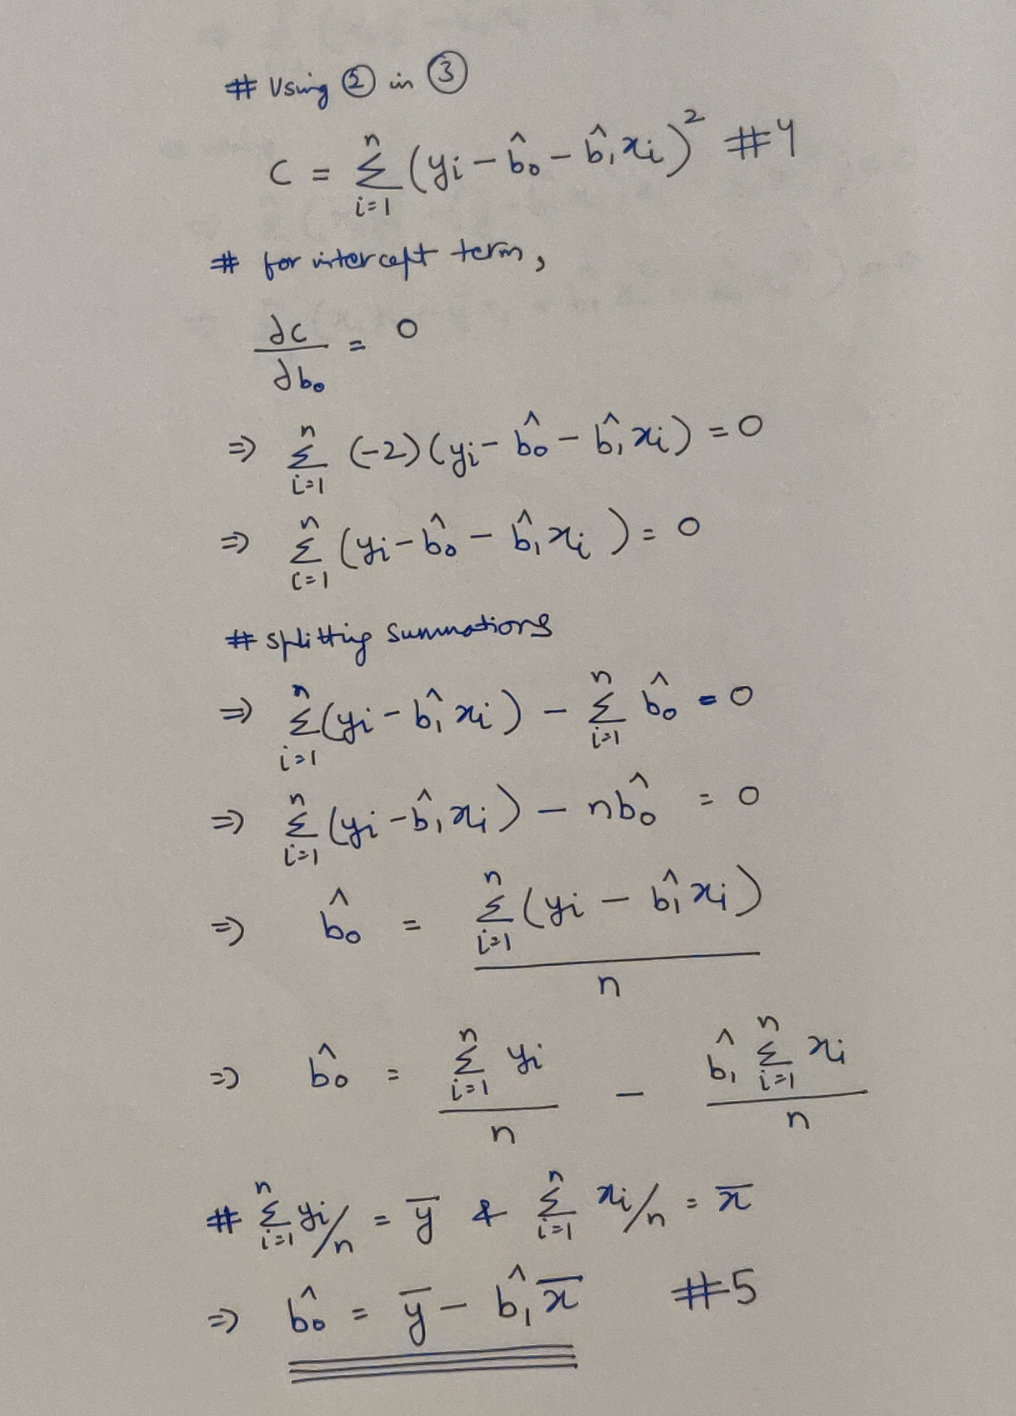 # Using ② in ③
C = Σ_{i=1}^{n} (yi − b̂₀ − b̂₁xi)² #4
# for intercept term,
∂c/∂b₀ = 0
⇒ Σ_{i=1}^{n} (-2)(yi − b̂₀ − b̂₁xi) = 0
⇒ Σ_{i=1}^{n} (yi − b̂₀ − b̂₁xi) = 0
# splitting summations
⇒ Σ_{i=1}^{n} (yi − b̂₁xi) − Σ_{i=1}^{n} b̂₀ = 0
⇒ Σ_{i=1}^{n} (yi − b̂₁xi) − nb̂₀ = 0
⇒ b̂₀ = Σ_{i=1}^{n} (yi − b̂₁xi) / n
⇒ b̂₀ = Σ_{i=1}^{n} yi / n − b̂₁ Σ_{i=1}^{n} xi / n
# Σ_{i=1}^{n} yi/n = ȳ & Σ_{i=1}^{n} xi/n = x̄
⇒ b̂₀ = ȳ − b̂₁x̄ #5